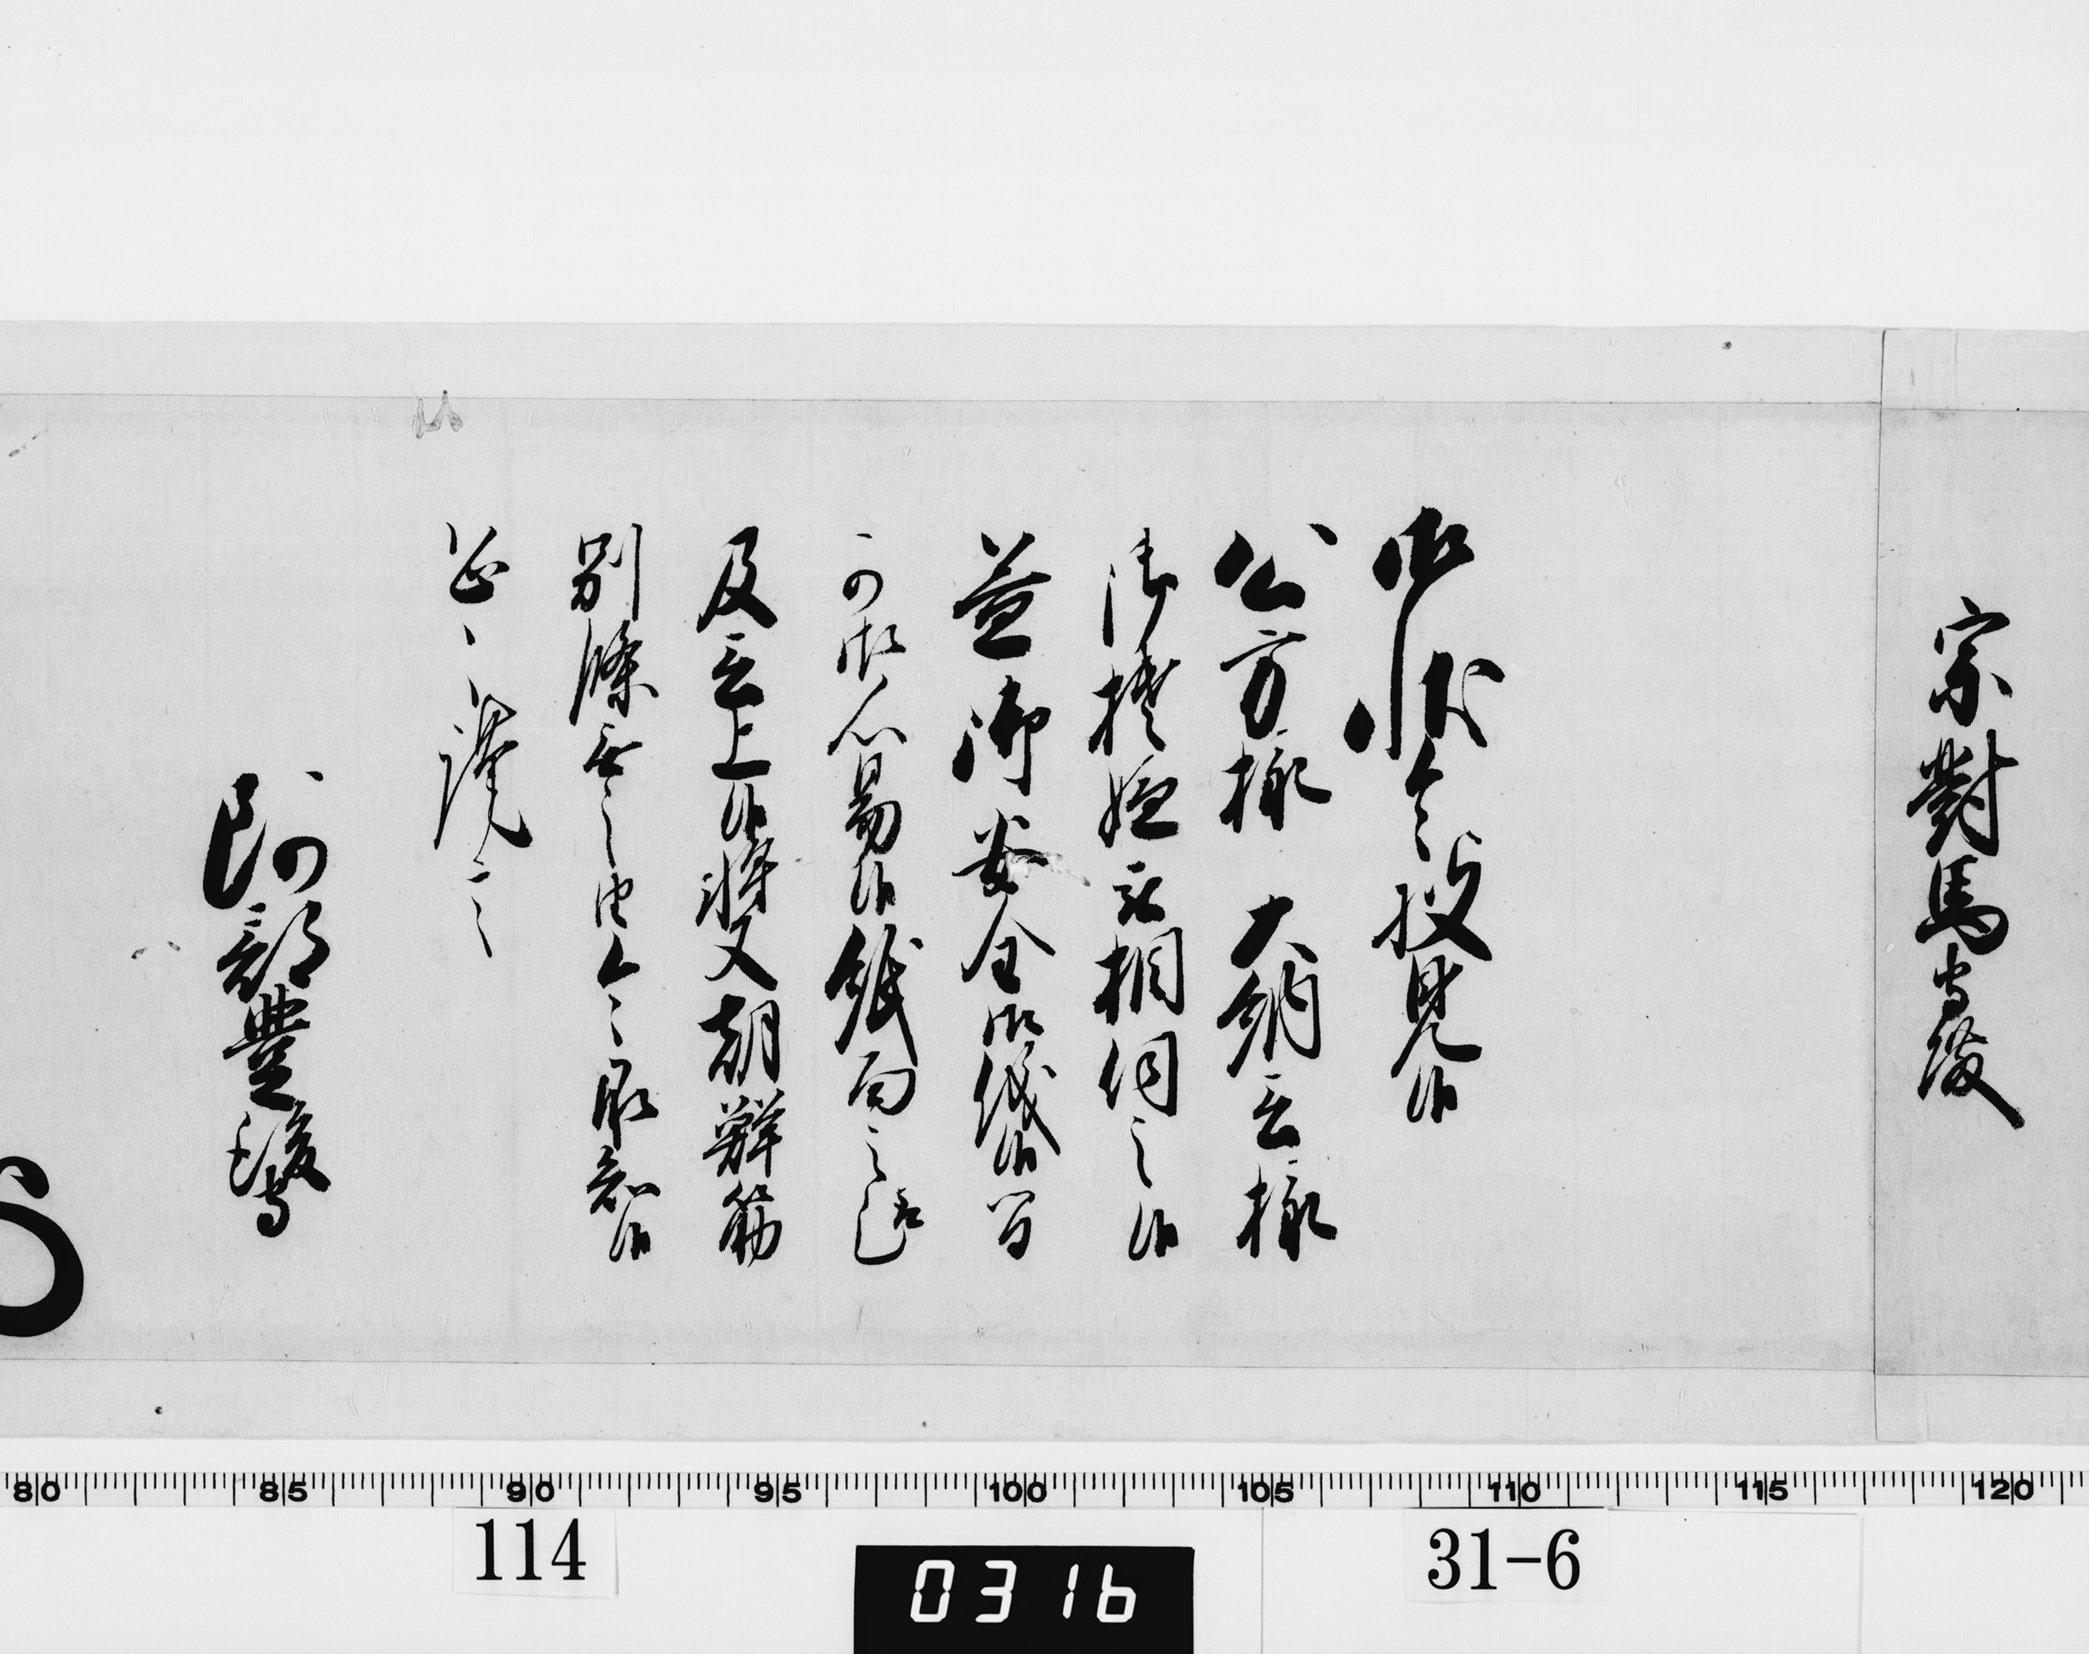 宗對馬守殿
御状令披見候
公方様 大納言様
御機嫌被相伺之候
益御安全御儀候間
可御心易候紙面之趣
及言上候将又朝鮮筋
別條無之由令承知候
恐々謹言
阿部豊後守
80 85 90 95 100 105 110 115 120
114
0316
31-6